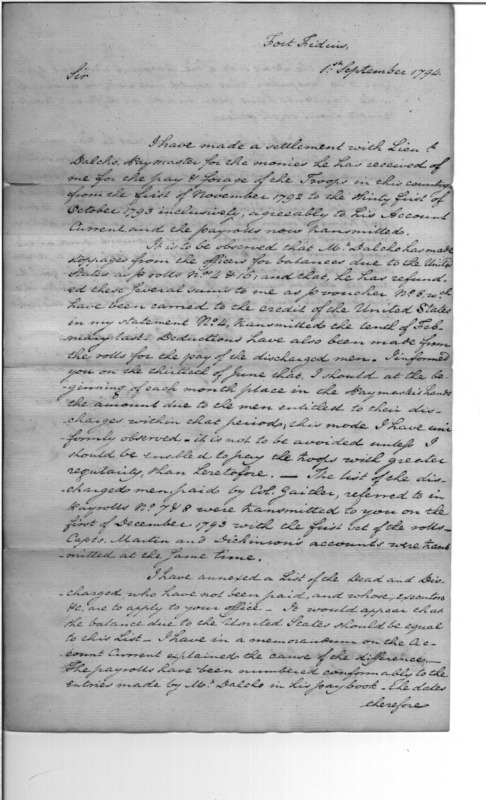 Fort Fidius,
1st September 1794.
Sir
I have made a settlement with Lieut
Dalcho, Paymaster for the monies he has received of
me for the pay & forage of the Troops in this country
from the first of November 1792 to the thirty first of
October 1793 inclusively, agreeably to his Account
Current and the payrolls now transmitted.
It is to be observed that Mr Dalcho has made
stoppages from the officers for balances due to the United
States as p rolls No 4 & 16; and that, he has refund-
ed these several sums to me as p voucher No 6, wch
have been carried to the credit of the United States
in my statement No 4, transmitted the tenth of Feb-
ruary last. Deductions have also been made from
the rolls for the pay of the discharged men. I informed
you on the thirtieth of June that, I should at the be-
-ginning of each month place in the Paymasters hands
the amount due to the men entitled to their dis-
-charges within that period; this mode I have uni-
-formly observed - it is not to be avoided unless I
should be enabled to pay the troops with greater
regularity, than heretofore. — The list of the dis-
-charged men, paid by Col. Gaither, referred to in
Payrolls No 7 & 8 were transmitted to you on the
first of December 1793 with the first set of the rolls -
Capts. Martin and Dickinson's accounts were trans
-mitted at the same time.
I have annexed a List of the Dead and Dis-
-charged, who have not been paid, and whose, executors
&c, are to apply to your office - It would appear that
the balance due to the United States should be equal
to this List - I have in a memorandum on the Ac-
-count Current explained the cause of the difference. —
The payrolls have been numbered conformably to the
entries made by Mr Dalcho in his paybook - The dates
therefore